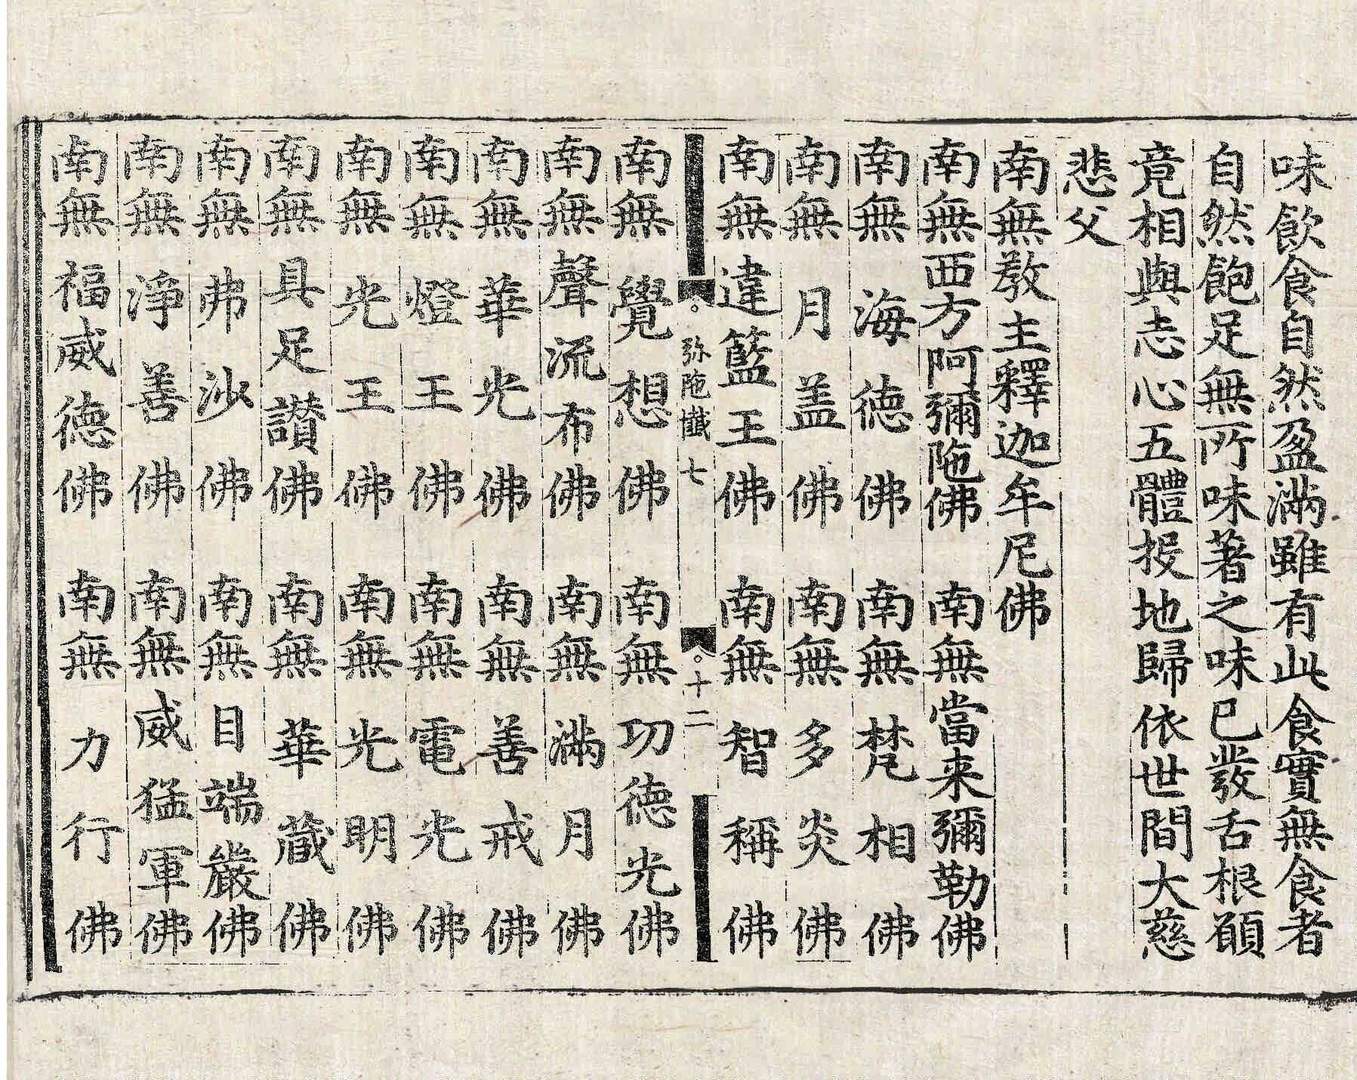 味飲食自然盈滿雖有此食實無食者
自然飽足無所味著之味已發舌根願
竟相與志心五體投地歸依世間大慈
悲父
南無教主釋迦牟尼佛
南無西方阿彌陁佛 南無當来彌勒佛
南無海德佛 南無梵相佛
南無月盖佛 南無多炎佛
南無違籃王佛 南無智稱佛
弥陁懺 七 十二
南無覺想佛 南無功德光佛
南無聲流布佛 南無滿月佛
南無華光佛 南無善戒佛
南無燈王佛 南無電光佛
南無光王佛 南無光明佛
南無具足讃佛 南無華蔵佛
南無弗沙佛 南無目端嚴佛
南無淨善佛 南無威猛軍佛
南無福威德佛 南無力行佛